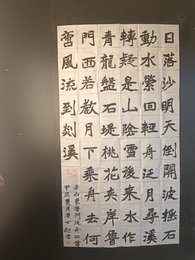 日落沙明天倒開波搖石
動水縈回輕舟泛月尋溪
轉疑是山陰雪後來水作
青龍盤石堤桃花夾岸魯
門西若教月下乘舟去何
啻風流到剡溪
李白東魯門泛舟二首
甲辰夏月書